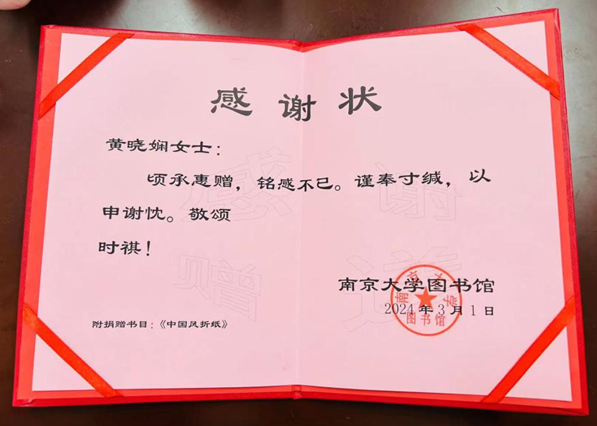 感谢状
黄晓娴女士：
顷承惠赠，铭感不已。谨奉寸缄，以
申谢忱。敬颂
时祺！
南京大学图书馆
2024年3月1日
附捐赠书目：《中国风折纸》
南京大学
图书馆
感谢
赠送